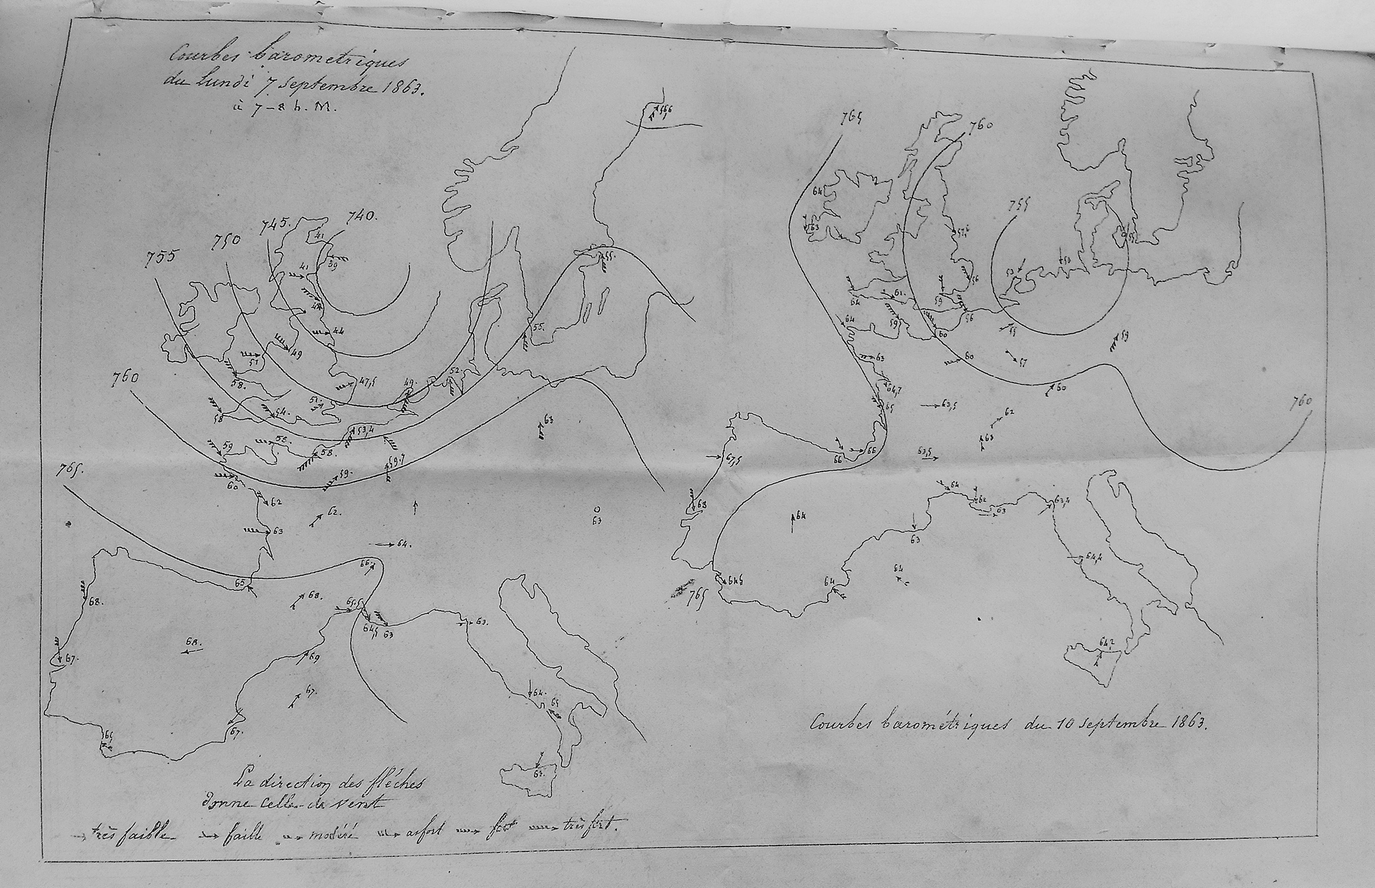 Courbes barometriques
du Lundi 7 Septembre 1863.
à 7-8 h. M.
740.
745.
750
755
760
765.
41
41
39
44
49
51
58.
47,5
49
52.
55.
55.
54.
58
53,4
58.
59
59.
59,7
60
62
62.
63
63
63
64.
65
66
68.
68.
68.
67.
69
67.
67.
65,5
64,5
63
63.
64.
La direction des flèches
donne celle du vent
très faible faible modéré asfort fort très fort.
765
760
755
64
763
53
53
56
59
61
59
56
64
64
60
55
59
63
60
64,7
65
63,5
60
62
63
63,5
66
66
67,5
68
760
64
64
62
63
63,4
63
64
64
64,4
64,5
765
64,2
Courbes barométriques du 10 Septembre 1863.